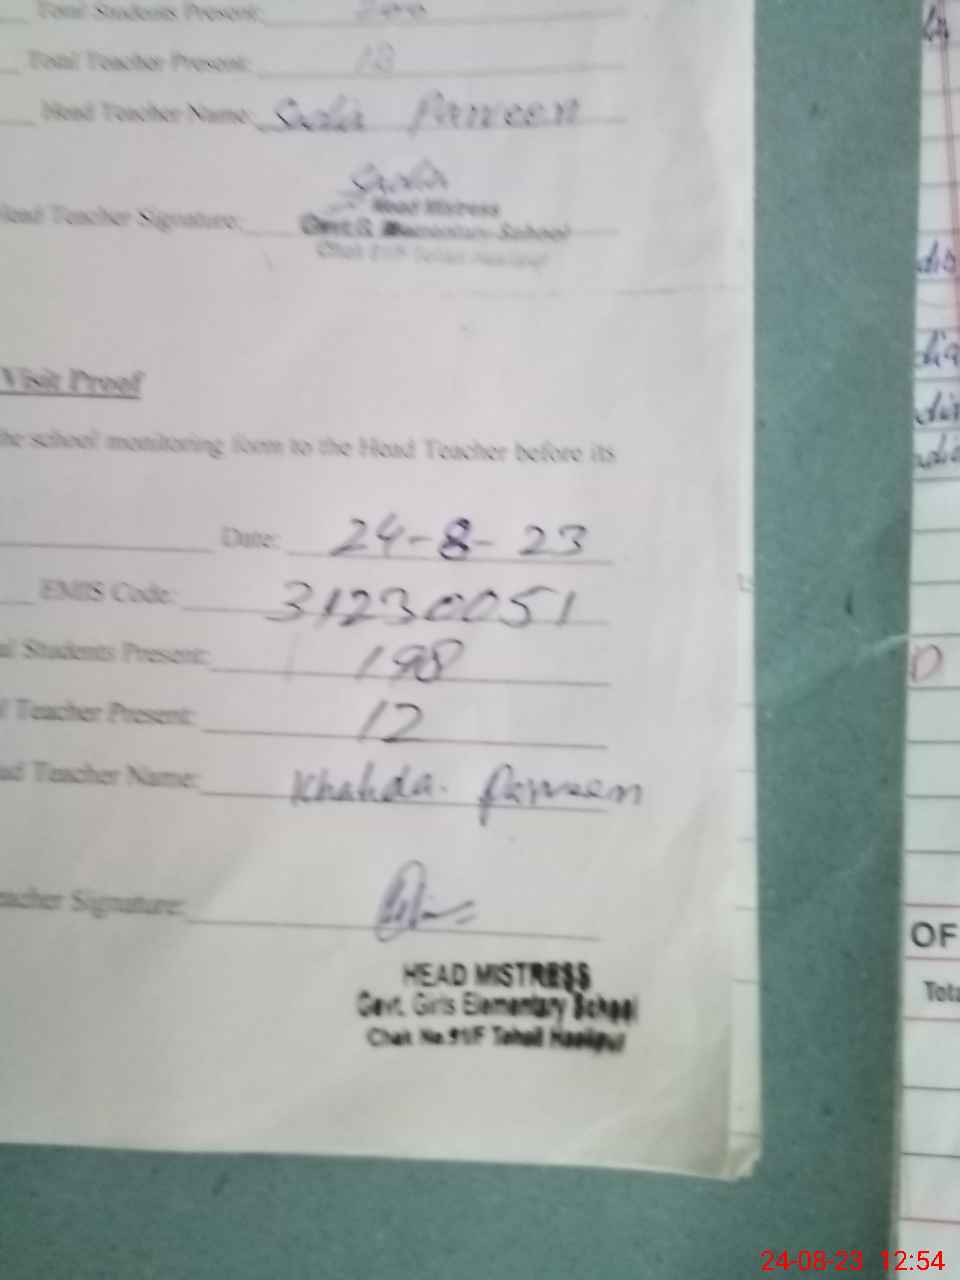 Total Students Present: 200
Total Teacher Present: 12
Head Teacher Name: Sadia Parveen
Head Teacher Signature: Sadia
Head Mistress
Govt. G. Elementary School
Chak 91/F Tehsil Hasilpur
Visit Proof
the school monitoring form to the Head Teacher before its
Date: 24-8-23
EMIS Code: 31230051
Students Present: 198
Teacher Present: 12
Teacher Name: Khalida. Parveen
Signature:
HEAD MISTRESS
Govt. Girls Elementary School
Chak No.91/F Tehsil Hasilpur
OF
24-08-23 12:54